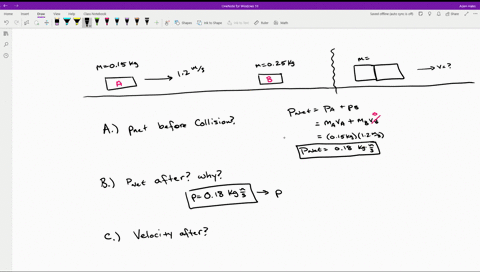 OneNote for Windows 10
File Home Insert Draw View Help
Shapes Ink to Shape Ink to Text
m=0.15 kg
A
1.2 m/s
m=0.25 kg
B
m=
v=?
A.) Pnet before Collision?
Pnet = PA + PB
= mAvA + mBvB 0
= (0.15kg)(1.2 m/s)
Pnet = 0.18 kg m/s
B.) Pnet after? why?
P=0.18 kg m/s → P
C.) Velocity after?